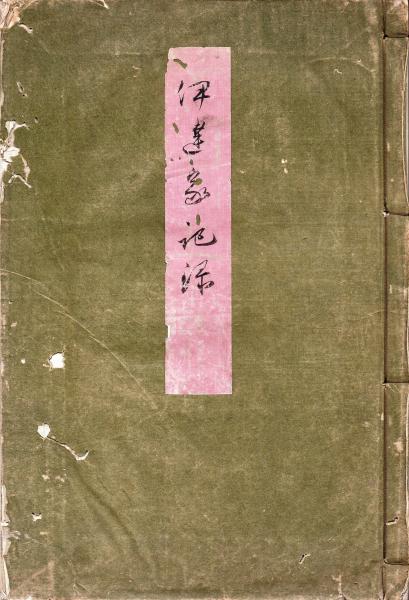 伊達家記録